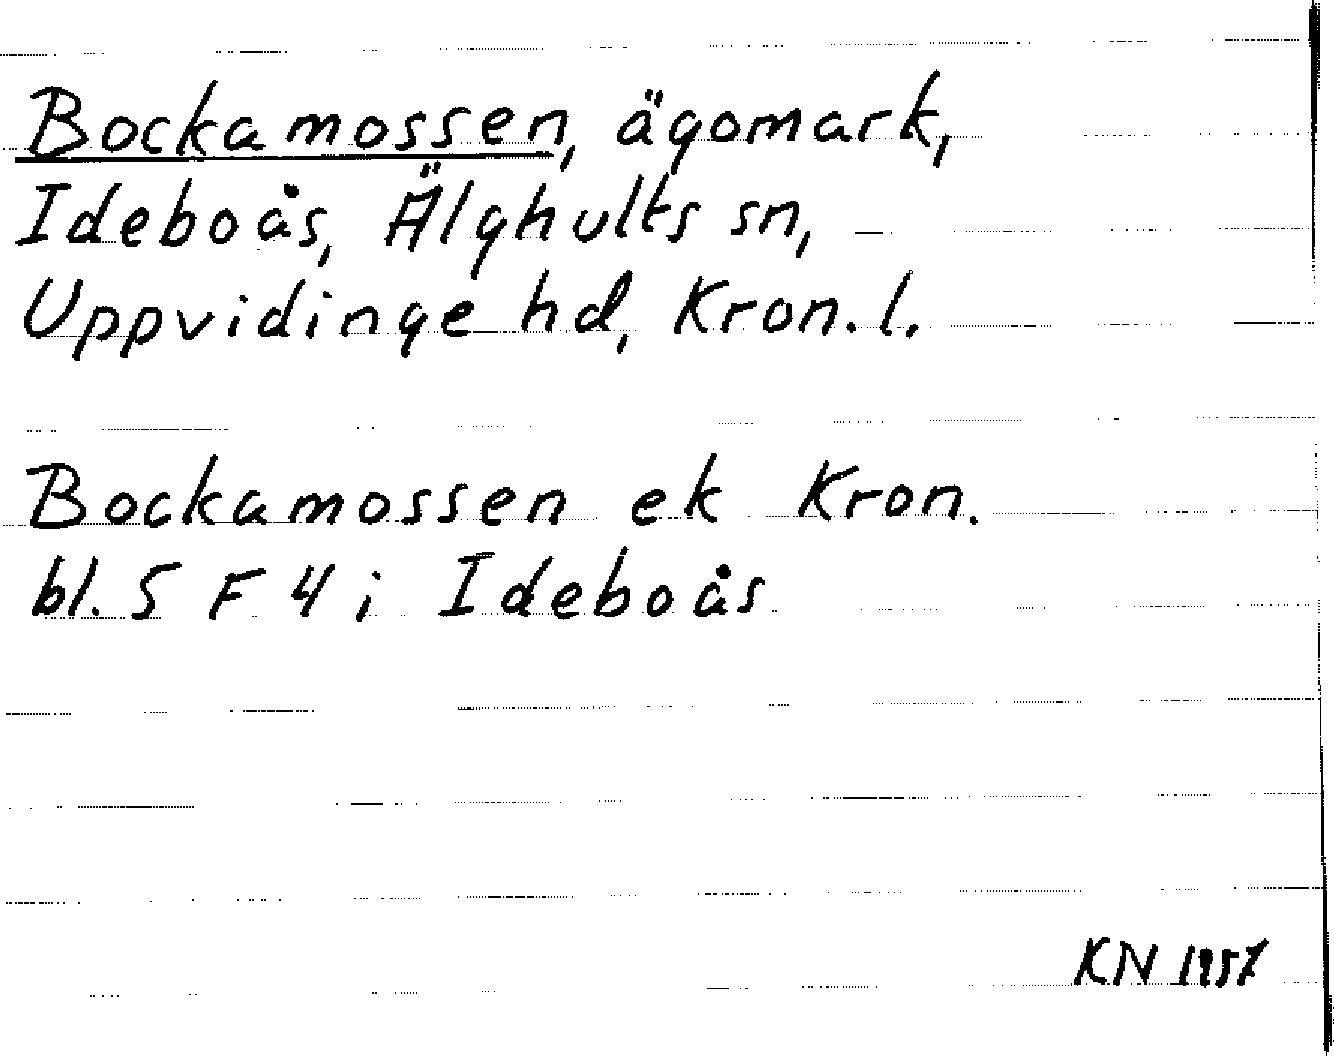 Bockamossen, ägomark,
Ideboås, Älghults sn,
Uppvidinge hd, Kron. l.
Bockamossen ek Kron.
bl. 5 F 4 i Ideboås
KN 1957